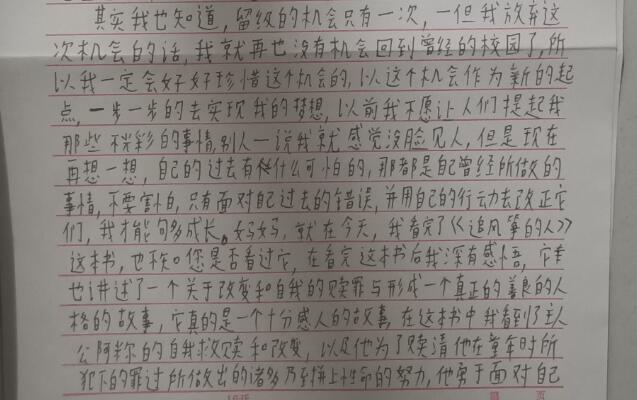 其实我也知道，留级的机会只有一次，一但我放弃这
次机会的话，我就再也没有机会回到曾经的校园了，所
以我一定会好好珍惜这个机会的，以这个机会作为新的起
点，一步一步的去实现我的梦想，以前我不愿让人们提起我
那些不光彩的事情，别人一说我就感觉没脸见人，但是现在
再想一想，自己的过去有什么可怕的，那都是自己曾经所做的
事情，不要害怕，只有面对自己过去的错误，并用自己的行动去改正它
们，我才能句多成长。妈妈，就在今天，我看完了《追风筝的人》
这本书，也不知您是否看过它，在看完这本书后我深有感悟，它
也讲述了一个关于改变和自我的赎罪与形成一个真正的善良的人
格的故事，它真的是一个十分感人的故事，在这本书中我看到了主人
公阿米尔的自我救赎和改变，以及他为了赎清他在童年时所
犯下的罪过所做出的诸多乃至拼上性命的努力，他勇于面对自己